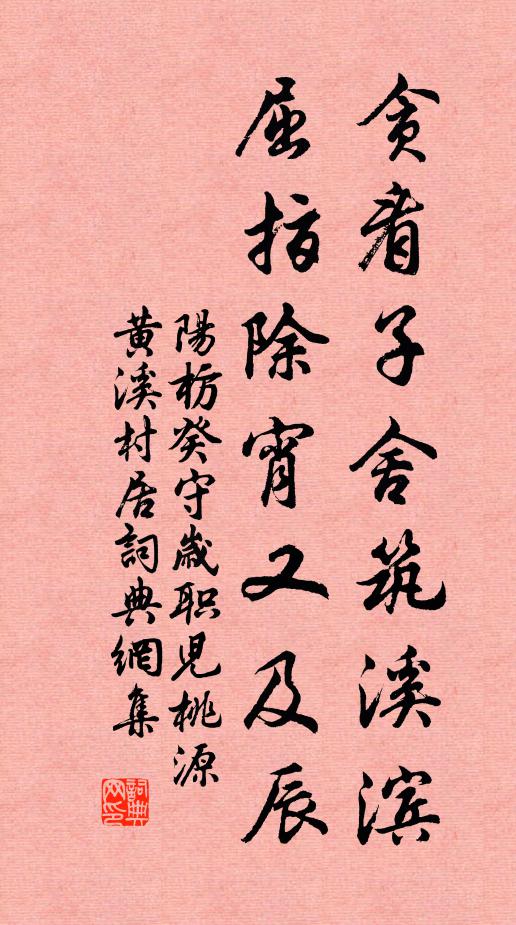 贪看子舍筑溪滨
屈指除宵又及辰
陽枋癸守歲职児桃源
黄溪村居詞典網集
詞典网印